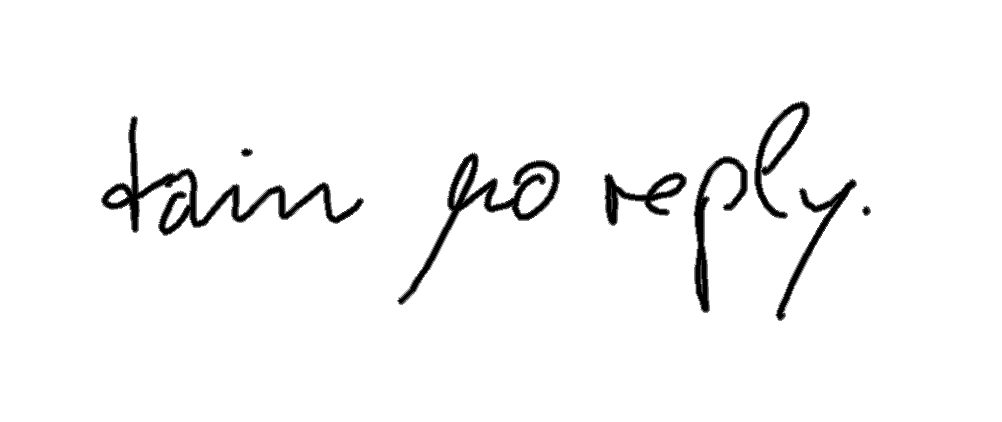 tain no reply.